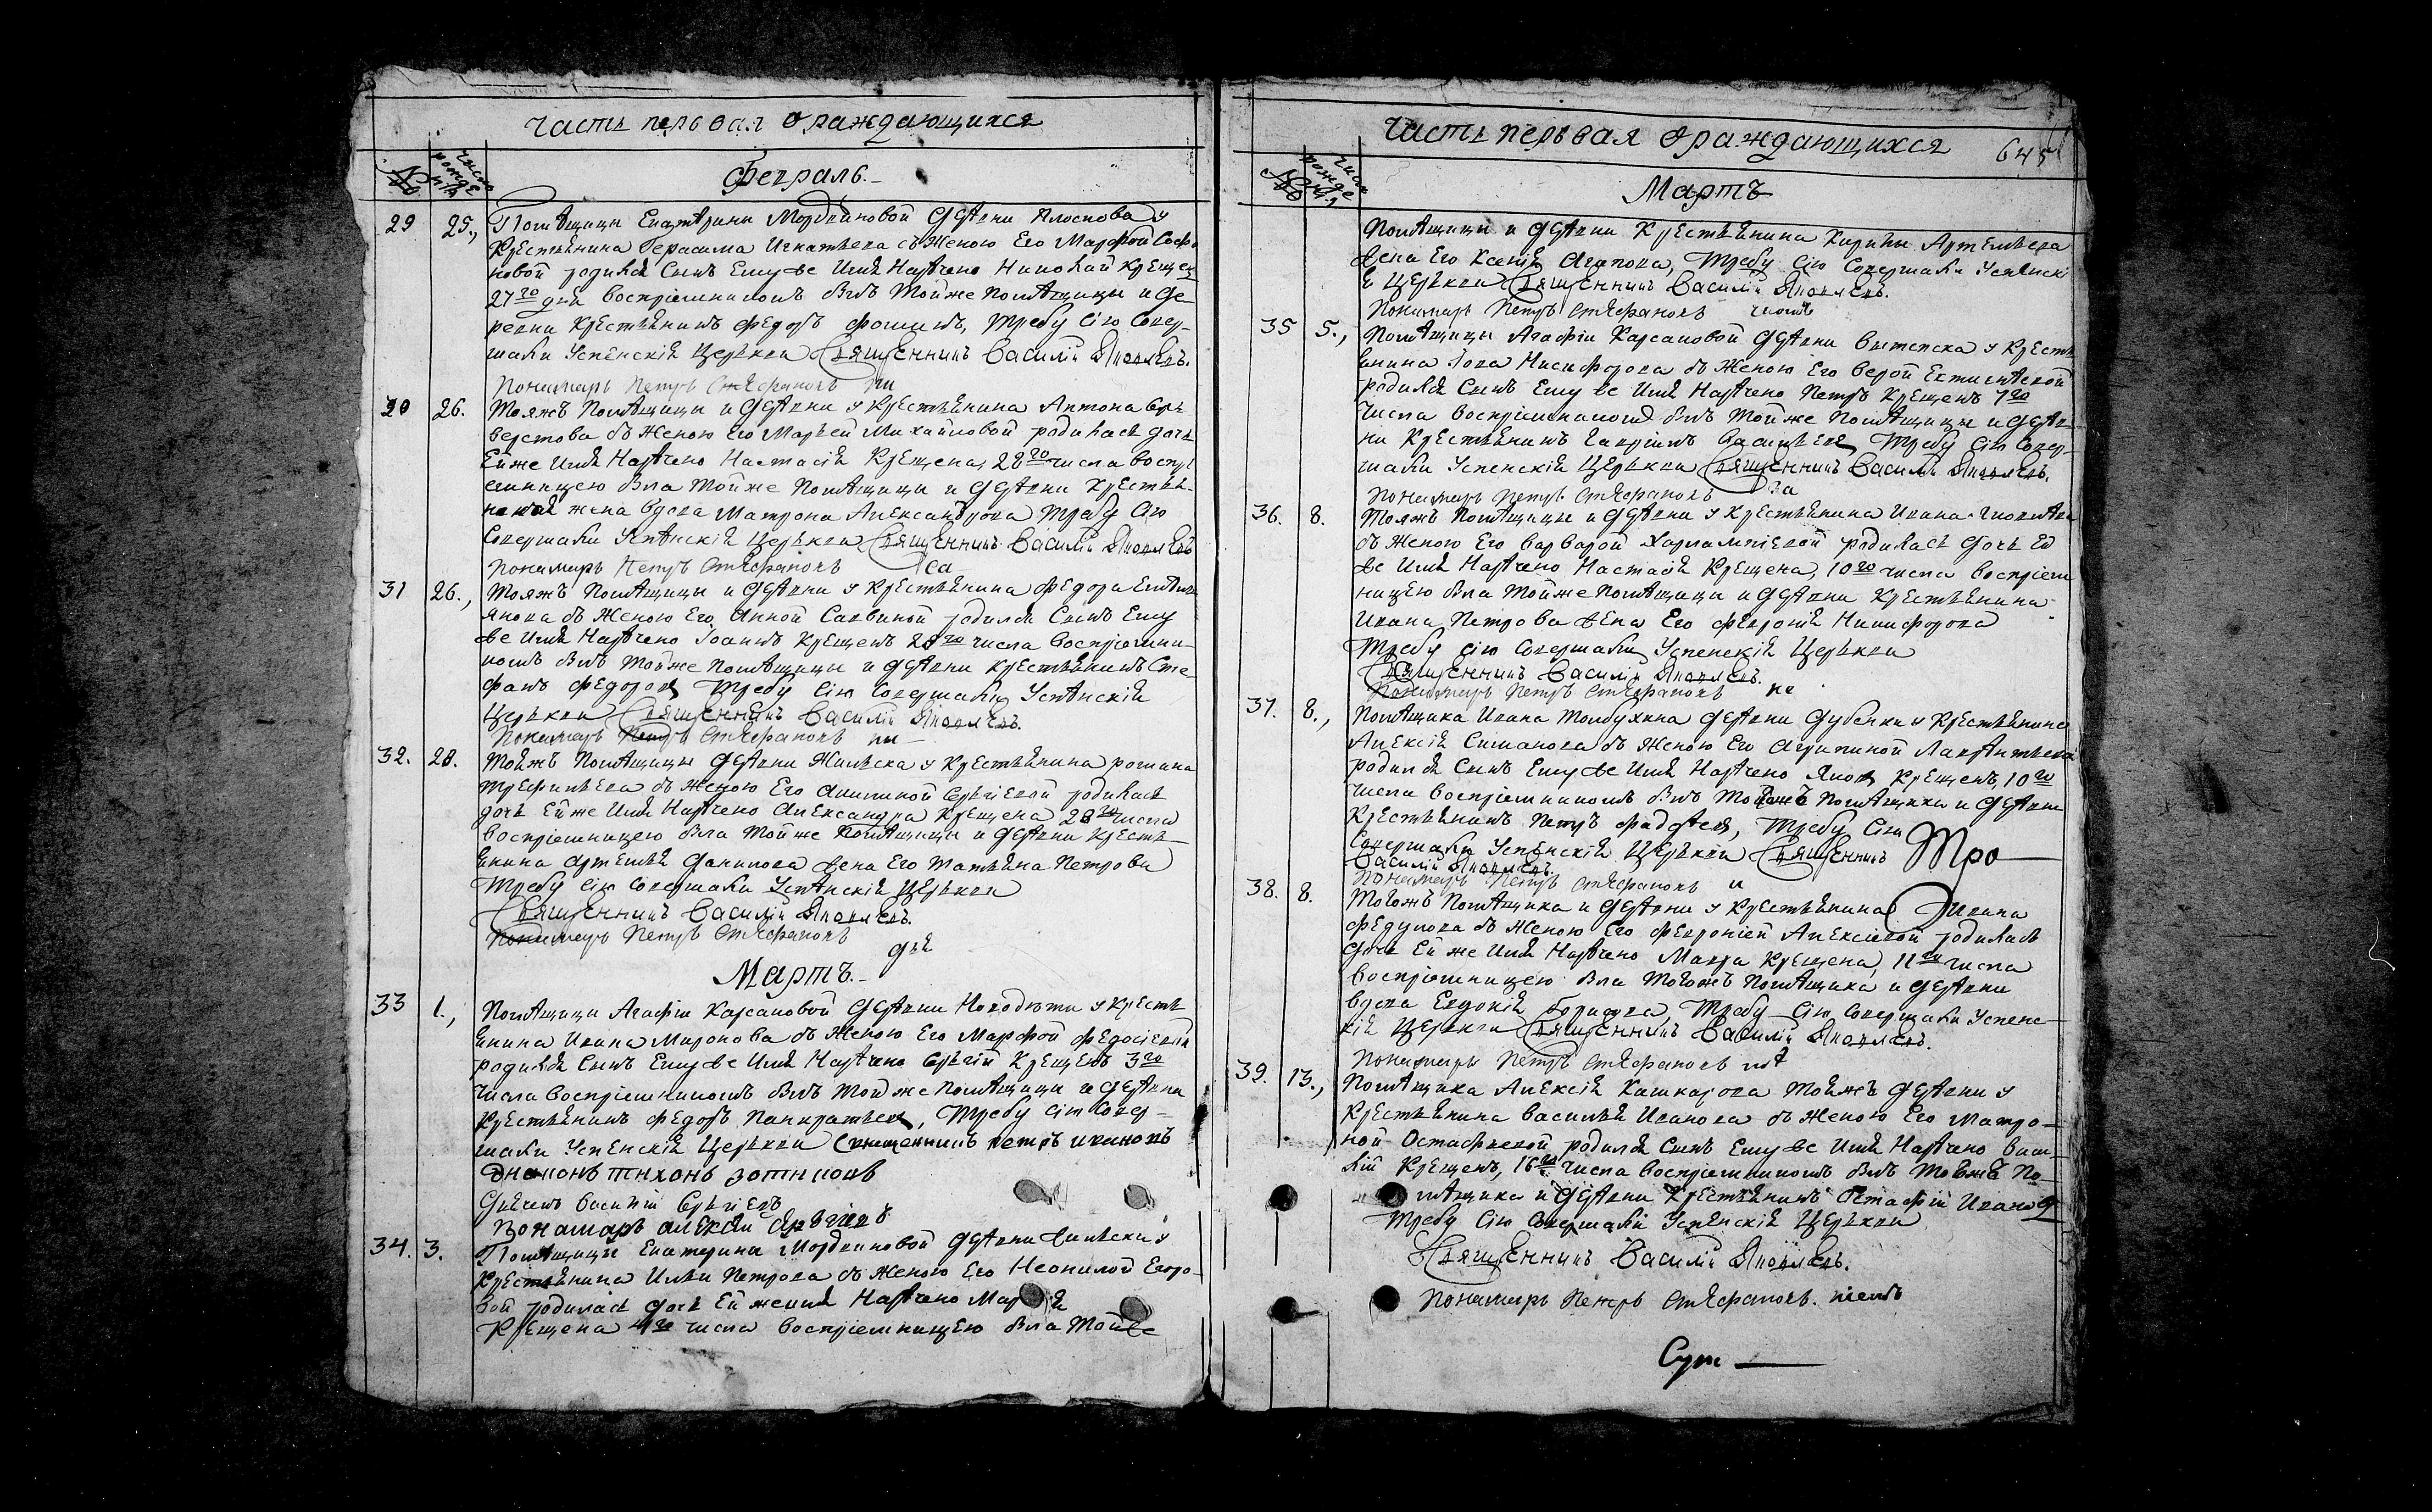 часть первая ораждающихся
№
число рожде нія
Февраль.
29 25., Помѣщицы Екатерины Мордвиновой дѣревни Плоскова у
Крестьянина Герасима Игнатьева съ Женою Его Марфой
новой родился Сынъ Ему же Имя Нарѣчено Николай Крещен
27го дня воспріемникомъ былъ Тойже помѣщицы и де-
ревни Крестьянинъ Федоръ Фоминъ, Требу Сію Совер-
шали Успенскія Церькви Священникъ Василій Яковлевъ.
Пономарь Петръ Стефановъ
30 26. Тояжъ Помѣщицы и дѣревни у Крестьянина Антона
верстова съ Женою Его Марьей Михайловой родилась дочь
Ейже Имя Нарѣчено Настасія Крещена, 28го числа воспрі
емницею была Тойже Помѣщицы и дѣревни Крестья-
жена вдова Матрона Александрова Требу Сію
Совершали Успенскія Церькви Священникъ Василій Яковлевъ
Пономарь Петръ Стефановъ
31 26., Тояжъ Помѣщицы и дѣревни у Крестьянина Федора
янова съ Женою Его Анной Савиной родился Сынъ Ему
же Имя Нарѣчено Іоаннъ Крещенъ 28го числа воспріемни-
комъ былъ Тойже Помѣщицы и дѣревни Крестьянинъ Сте-
фанъ Федоровъ Требу Сію Совершали Успенскія
Церькви Священникъ Василій Яковлевъ.
Пономарь Петръ Стефановъ
32. 28. Тояжъ Помѣщицы дѣревни у Крестьянина романа
трефильева съ Женою Его Акилиной Сергіевой родилась
дочь Ейже Имя Нарѣчено Александра Крещена 28го числа
воспріемницею была Тойже Помѣщицы и дѣревни Кресть-
янина Артемья Данилова жена Его Татьяна Петрова
Требу Сію Совершали Успенскія Церькви
Священникъ Василій Яковлевъ.
Пономарь Петръ Стефановъ
Мартъ.
33 1., Помѣщицы Агафіи Карсаковой дѣревни у Кресть
янина Ивана Миронова съ Женою Его Марфой Федосѣевой
родился Сынъ Ему же Имя Нарѣчено Сергій Крещенъ 3го
числа воспріемникомъ былъ Тойже Помѣщицы и дѣревни
Крестьянинъ Федоръ Панкратьевъ, Требу Сію Совер-
шали Успенскія Церькви Священникъ петръ ивановъ
диаконъ тихонъ зотиковъ
Дьячекъ Василій Сергіевъ
Пономарь алексѣй
34. 3. Помѣщицы Екатерины Мордвиновой дѣревни у
Крестьянина Ильи Петрова съ Женою Его Неонилой Егоро-
вой родилась дочь Ей же имя Нарѣчено
Крещена 4го числа воспріемницею была Тойже
часть первая ораждающихся 645
№
число рожде нія
Мартъ
Помѣщицы и дѣревни Крестьянина Кирилы Артемьева
жена Его Ксенія Агапова, Требу Сію Совершали Успенскі
я Церькви Священникъ Василій Яковлевъ.
Пономарь Петръ Стефановъ
35 5., Помѣщицы Агафіи Карсаковой дѣревни у Кресть
янина Іова Никифорова съ Женою Его Верой
родился Сынъ Ему же Имя Нарѣчено Петръ Крещенъ 7го
числа воспріемникомъ былъ Тойже Помѣщицы и дѣрев-
ни Крестьянинъ Гавріилъ Васильевъ Требу Сію Совер-
шали Успенскія Церькви Священникъ Василій Яковлевъ.
Пономарь Петръ Стефановъ
36. 8. Тояжъ Помѣщицы и дѣревни у Крестьянина Ивана
съ Женою Его Варварой Харлампіевой родилась дочь Ей
же Имя Нарѣчено Настасія Крещена, 10го числа воспріем
ницею была Тойже Помѣщицы и дѣревни Крестьянина
Ивана Петрова жена Его Февронія Никифорова
Требу Сію Совершали Успенскія Церькви
Священникъ Василій Яковлевъ.
Пономарь Петръ Стефановъ
37. 8., Помѣщика Ивана Толбухина дѣревни Дубенки у Крестьянина
Алексія Симанова съ Женою Его Агрипиной
родился Сынъ Ему же Имя Нарѣчено Яковъ Крещенъ, 10го
числа воспріемникомъ былъ Тогожъ Помѣщика и дѣревни
Крестьянинъ Петръ Фадѣевъ, Требу Сію
Совершали Успенскія Церькви Священникъ Тро
Василій Яковлевъ.
Пономарь Петръ Стефановъ
38. 8. Тогожъ Помѣщика и дѣревни у Крестьянина Ивана
Федулова съ Женою Его Февроніей Алексіевой родилась
дочь Ей же Имя Нарѣчено Мавра Крещена, 11го числа
воспріемницею была Тогожъ Помѣщика и дѣревни
вдова Евдокія Борисова, Требу Сію Совершали Успенс-
кія Церькви Священникъ Василій Яковлевъ.
Пономарь Петръ Стефановъ
39. 13., Помѣщика Алексія Кашкарова Тояжъ дѣревни у
Крестьянина Василья Иванова съ Женою Его Матро-
ной Остафьевой родился Сынъ Ему же Имя Нарѣчено Васи
лій Крещенъ, 16го числа воспріемникомъ былъ Тогожъ По-
мѣщика и дѣревни Крестьянинъ Иванов
Требу Сію Совершали Успенскія Церькви
Священникъ Василій Яковлевъ.
Пономарь Петръ Стефановъ.